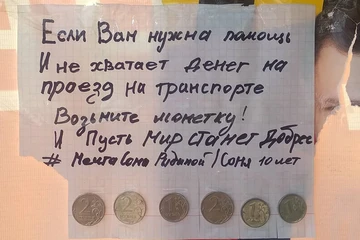 Если Вам нужна помощь
И не хватает денег на
проезд на транспорте
Возьмите монетку!
И Пусть Мир станет Добрее
# Мечта Сони Рядиной / Соня 10 лет